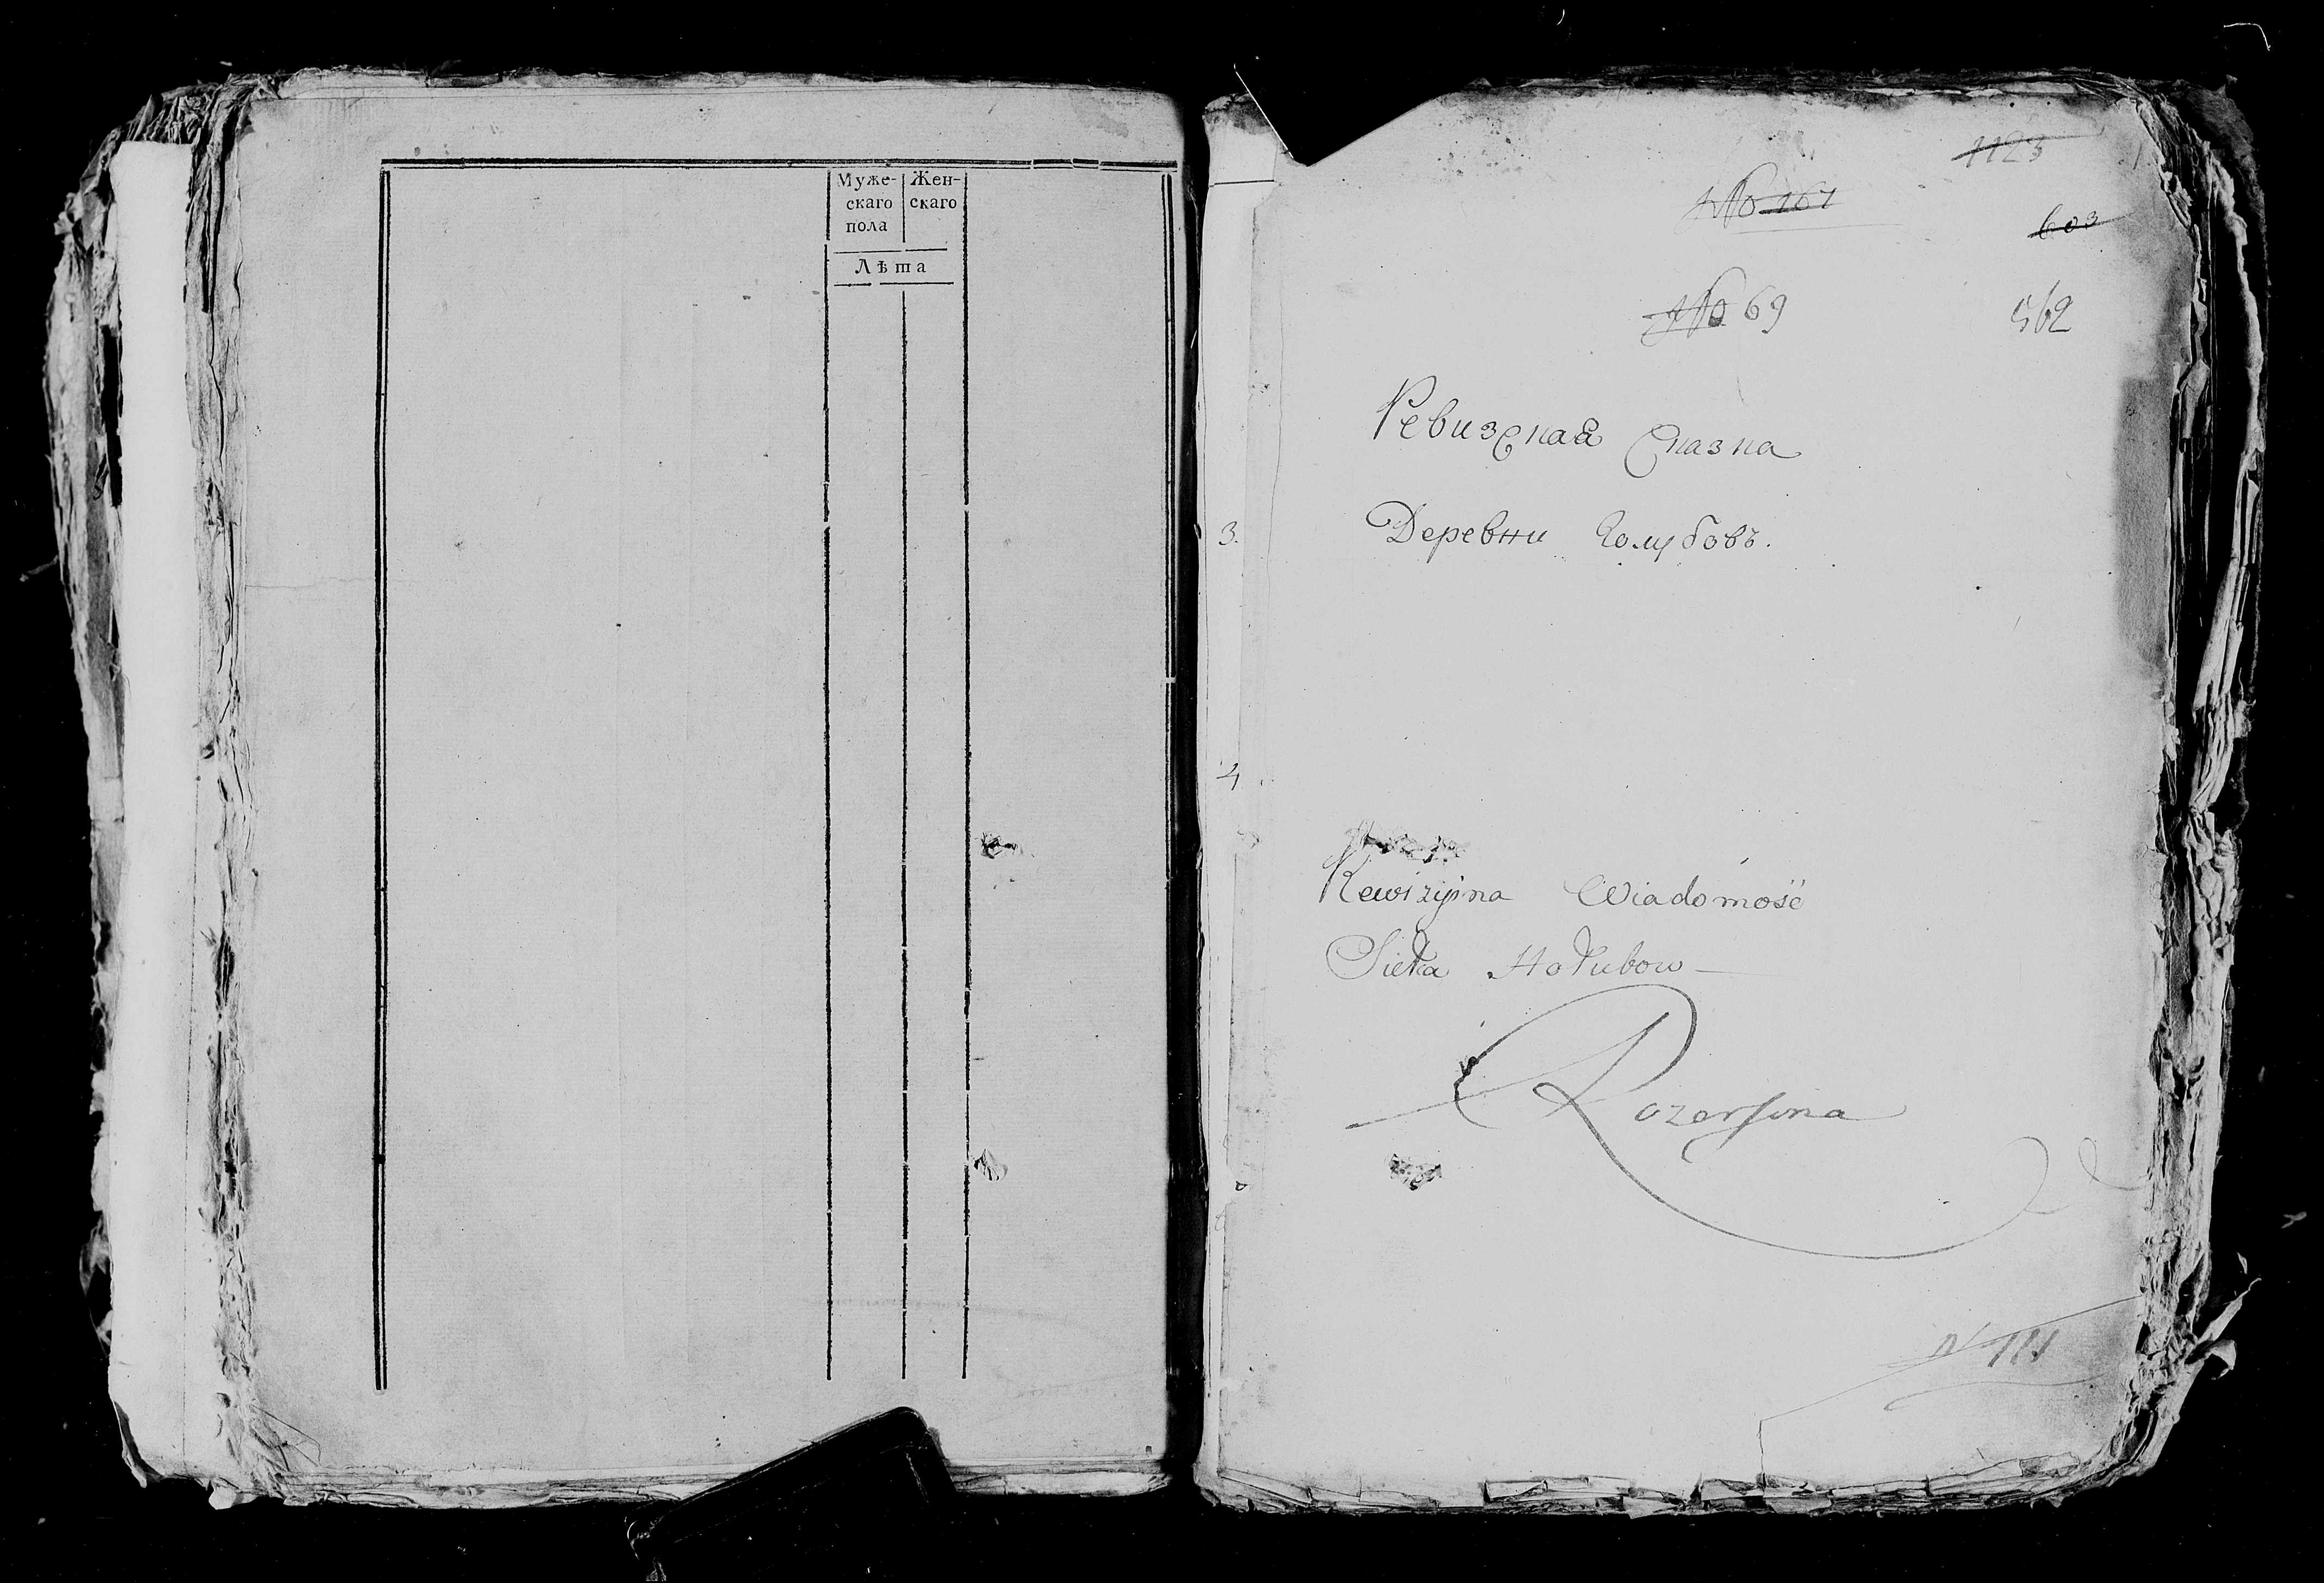 Муже-
скаго
пола
Жен-
скаго
Лѣта
1123
No 161
603
No 69
562
Ревизская Сказка
3.
Деревни Голубовъ.
4
Rewizyina Wiadomość
Sieła Hołubow
N 111